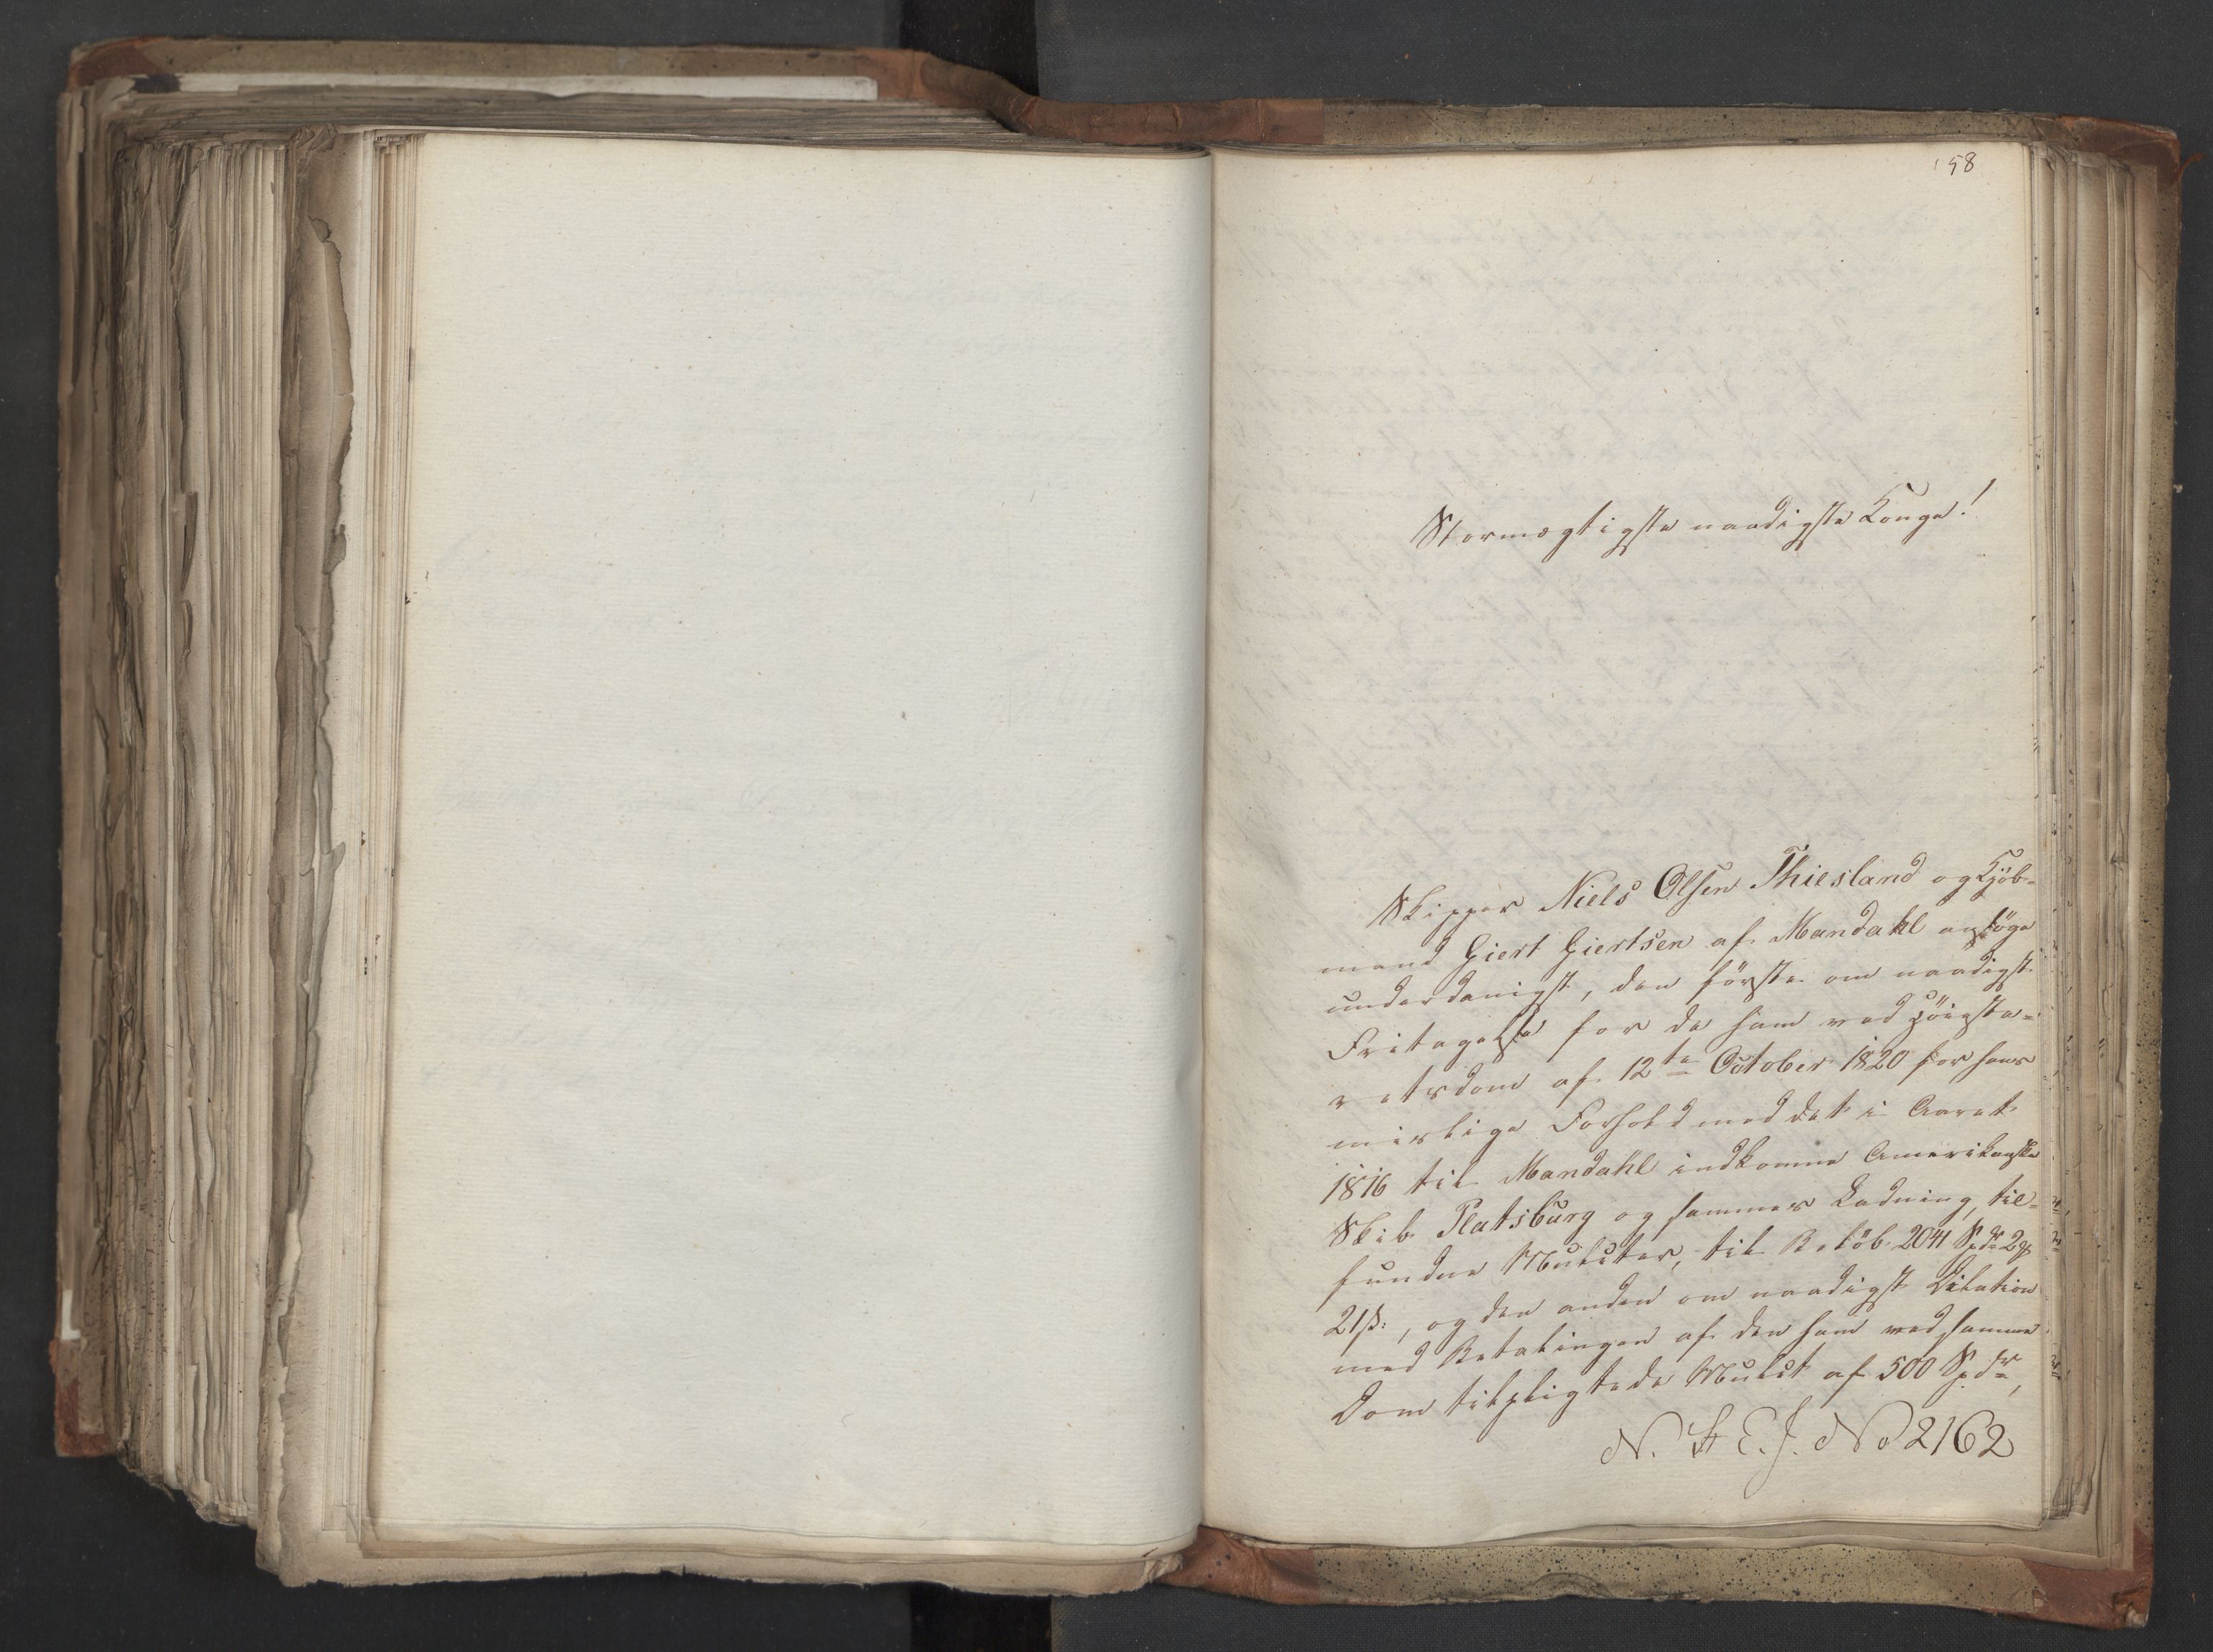 158
Stormægtigste naadigste Konge!
Skipper Niels Olsen Thiesland og Kjøb=
mand Giert Giertsen af Mandahl ansöge
underdanigst, den förste om naadigst
Fritagelse for de ham ved Höieste=
retsdom af 12te October 1820 for hans
mislige Forhold med det i Aaret
1816 til Mandahl indkomne Amerikanske
Skib Platsburg og sammes Ladning, til=
fundne Mulcter, til Belöb 2041 Spdr 2
21 ß:, og den anden om naadigst Dilation
med Betalingen af den ham ved samme
Dom tilpligtede Mulct af 500 Spdr,
N. F. E. J. No 2162